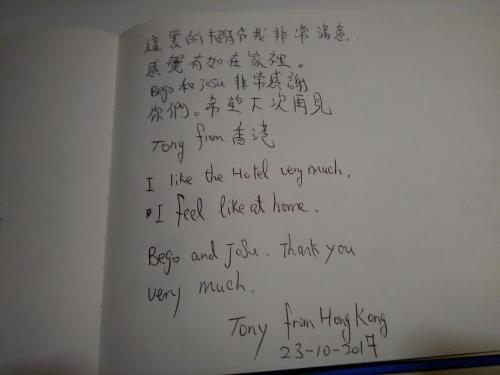 這裏的招待我非常滿意..
感覺有如在家裡。
Bego 和 JoSu 非常感謝
你們。希望下次再見
Tony from 香港
I like the Hotel very much.
I feel like at home.
Bego and JoSu. Thank you
very much.
Tony from Hong Kong
23-10-2017